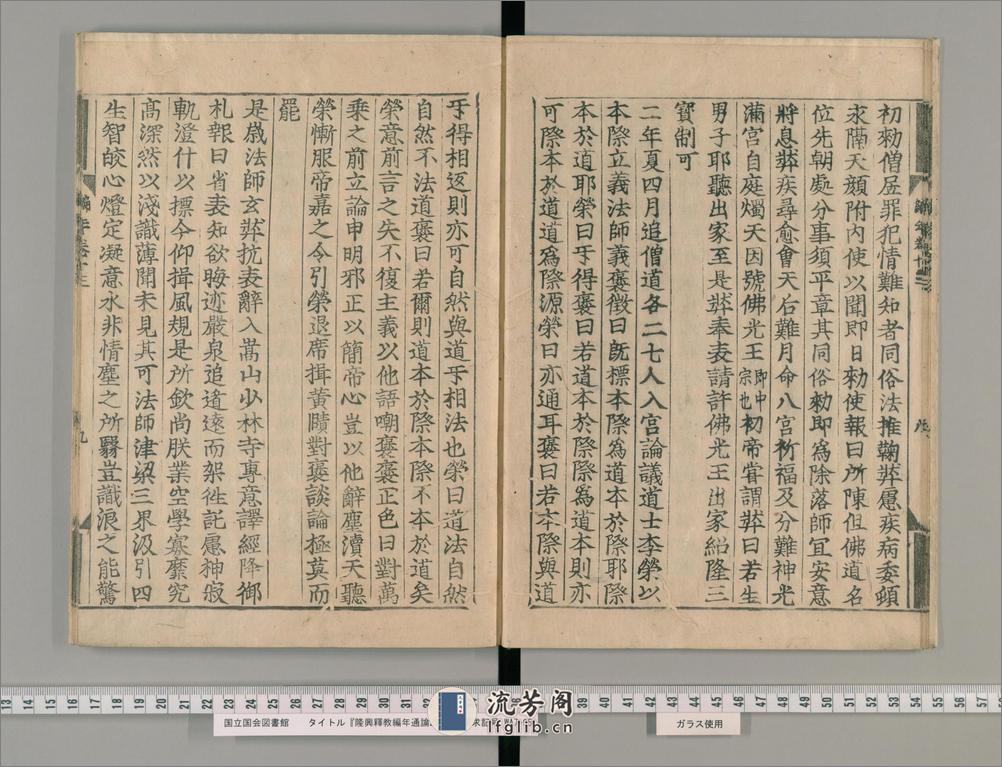 初勑僧𡰱罪犯情難知者同俗法推鞠弉慮疾病委頓
求隔天顔附內使以聞即日勑使報曰所陳但佛道名
位先朝處分事須平章其同俗勑即爲除落師冝安意
將息弉疾尋愈會天后難月命八宮祈福及分難神光
滿宮自庭燭天因號佛光王即中宗也初帝甞謂弉曰若生
男子耶聽出家至是弉奉表請許佛光王出家紹隆三
寳制可
二年夏四月追僧道各二七人入宮論議道士李榮以
本際立義法師義褒徵曰旣標本際爲道本於際耶際
本於道耶榮曰𠄔得褒曰若道本於際際爲道本則亦
可際本於道道爲際源榮曰亦通耳褒曰若本際與道
𠄔得相返則亦可自然與道𠄔相法也榮曰道法自然
自然不法道褒曰若爾則道本於際本際不本於道矣
榮意前言之失不復主義以他語嘲褒褒正色曰對萬
乗之前立論申明邪正以簡帝心豈以他辭塵瀆天聽
榮慚服帝嘉之令引榮退席揖黃賾對褒談論極莫而
罷
是歲法師玄弉抗表辭入嵩山少林寺專意譯經降御
札報曰省表知欲晦迹嚴泉追逺遠而架徃託慮神寂
軌澄什以摽今仰揖風規是所欽尚朕業空學寡靡究
高深然以淺識薄聞未見其可法師津梁三界汲引四
生智皎心燈定凝意水非情塵之所翳豈識浪之能驚
編年卷十三
九
13 14 15 16 17 18 19 20 21 22 23 24 25 26 27 28 29 30 31 32 33 34 39 40 41 42 43 44 45 46 47 48 49 50 51 52 53 54 55 56 57
国立国会図書館 タイトル『隆興釋教編年通論
ガラス使用
流芳阁
lfglib.cn